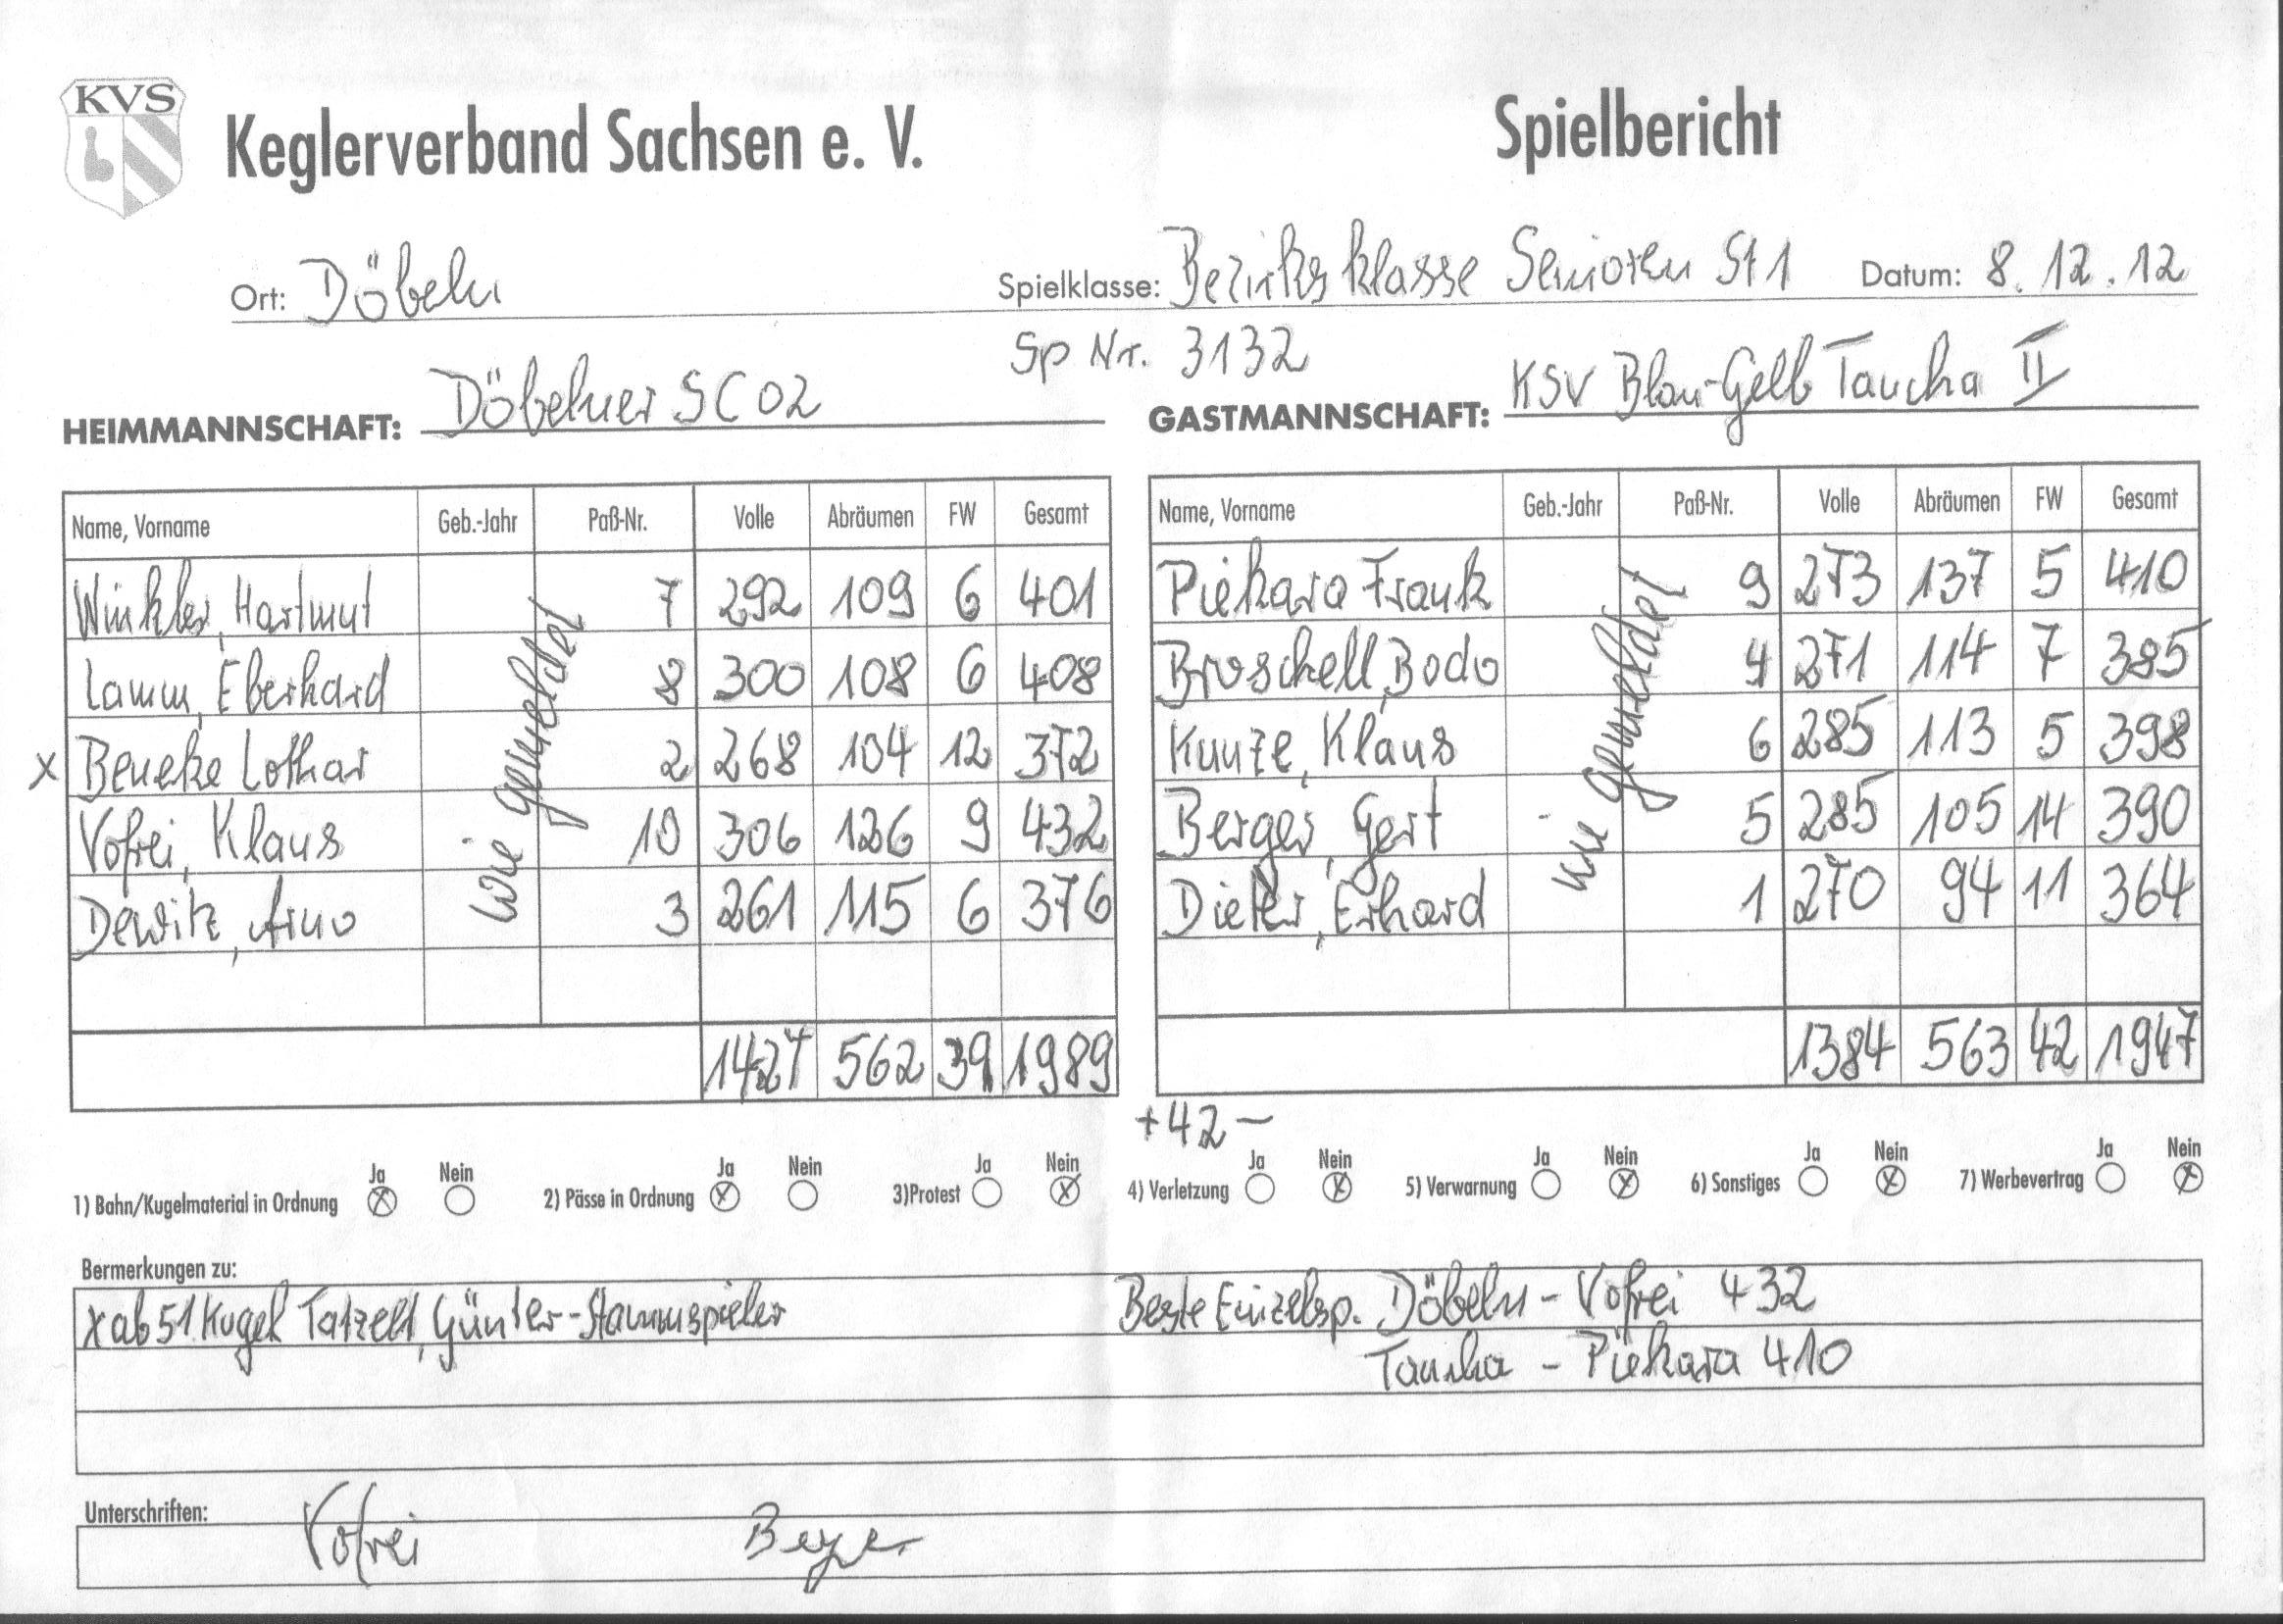 KVS
Keglerverband Sachsen e. V.
Spielbericht
Ort: Döbeln Spielklasse: Bezirksklasse Senioren St 1 Datum: 8. 12. 12
Sp Nr. 3132
HEIMMANNSCHAFT: Döbelner SC 02
GASTMANNSCHAFT: KSV Blau-Gelb Taucha II
Name, Vorname Geb.-Jahr Paß-Nr. Volle Abräumen FW Gesamt
Winkler, Hartmut 7 292 109 6 401
Lamm, Eberhard 8 300 108 6 408
x Beneke Lothar 2 268 104 12 372
Vofrei, Klaus 10 306 126 9 432
Dewitz, Arno 3 261 115 6 376
wie gemeldet
1427 562 39 1989
Name, Vorname Geb.-Jahr Paß-Nr. Volle Abräumen FW Gesamt
Piekara Frank 9 273 137 5 410
Broschell, Bodo 4 271 114 7 385
Kunze, Klaus 6 285 113 5 398
Berger, Gert 5 285 105 14 390
Dieter, Erhard 1 270 94 11 364
wie gemeldet
1384 563 42 1947
+ 42 –
1) Bahn/Kugelmaterial in Ordnung Ja x Nein 2) Pässe in Ordnung Ja x Nein 3)Protest Ja Nein x 4) Verletzung Ja Nein x 5) Verwarnung Ja Nein x 6) Sonstiges Ja Nein x 7) Werbevertrag Ja Nein x
Bermerkungen zu:
x ab 51. Kugel Tatzelt, Günter - Stammspieler Beste Einzelsp. Döbeln - Vofrei 432
Taucha - Piekara 410
Unterschriften: Vofrei